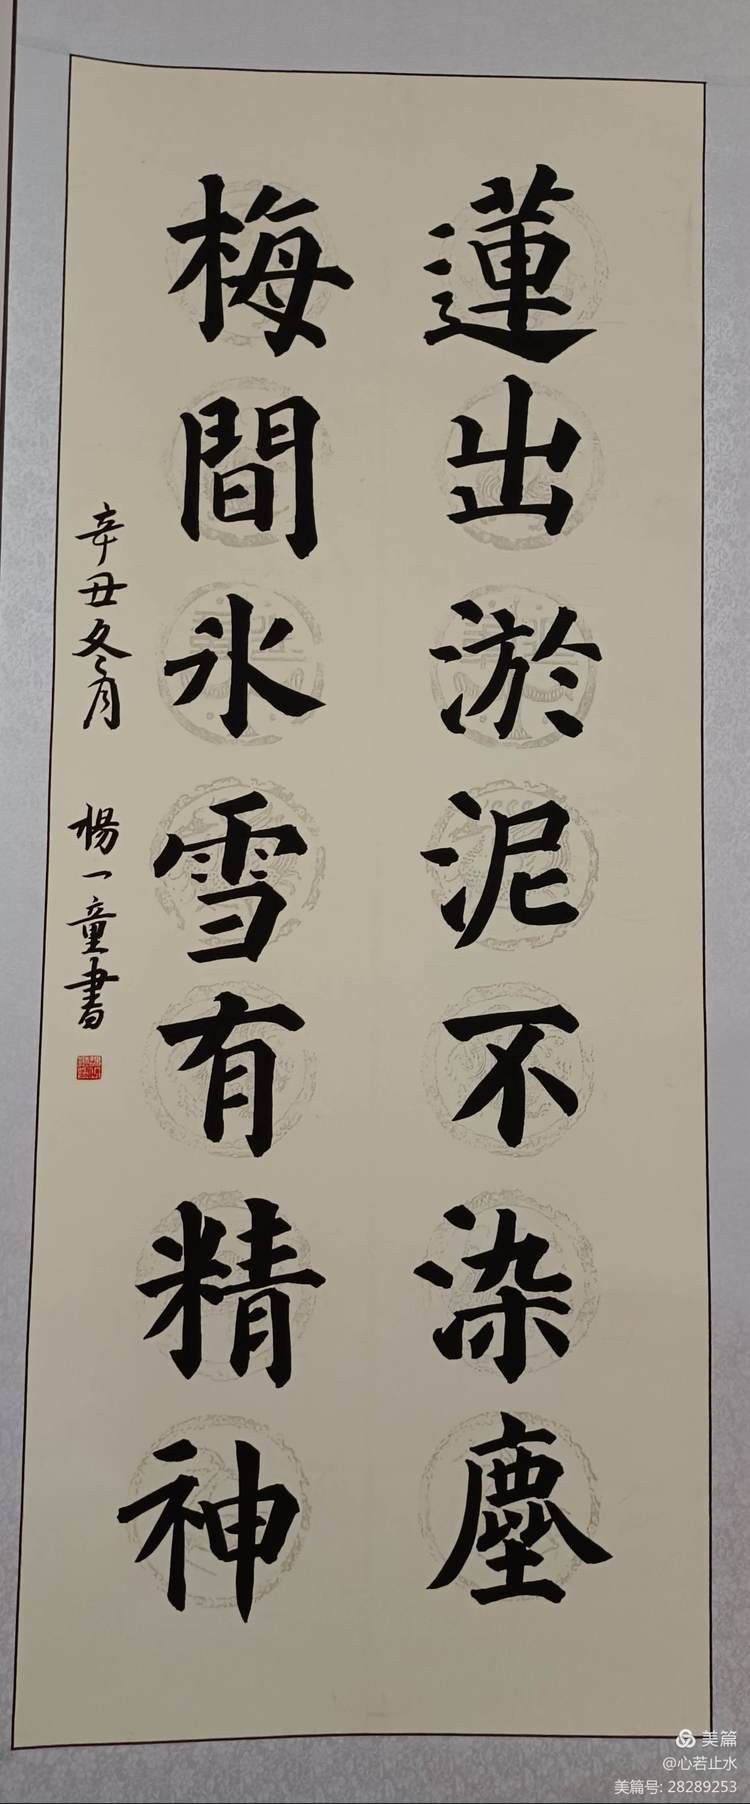 蓮出淤泥不染塵
梅間氷雪有精神
辛丑冬月 楊一童書
美篇
@心若止水
美篇号: 28289253